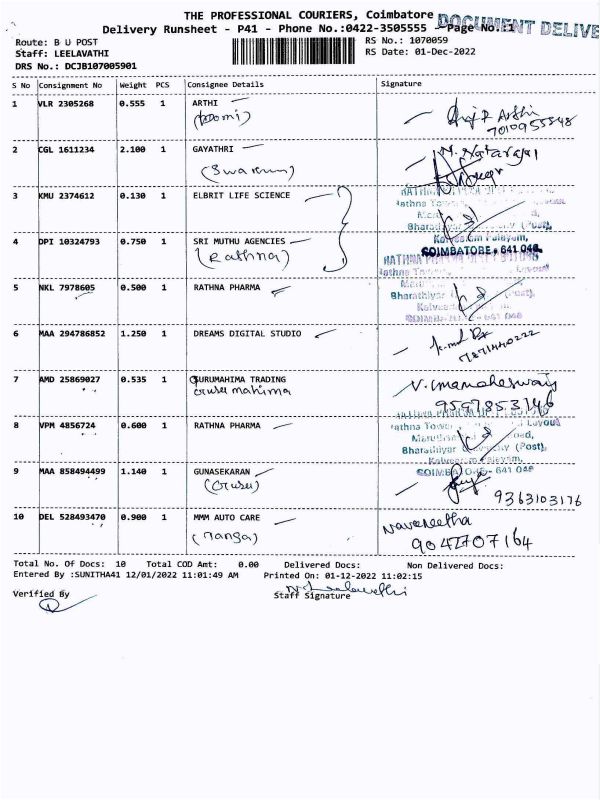 THE PROFESSIONAL COURIERS, Coimbatore
DOCUMENT DELIVE
Delivery Runsheet - P41 - Phone No.:0422-3505555 Page No.:1
Route: B U POST RS No.: 1070059
Staff: LEELAVATHI RS Date: 01-Dec-2022
DRS No.: DCJB107005901
S No Consignment No Weight PCS Consignee Details Signature
1 VLR 2305268 0.555 1 ARTHI
(Boomi) Arthi
7010955848
2 CGL 1611234 2.100 1 GAYATHRI N. Natarajal
3 KMU 2374612 0.130 1 ELBRIT LIFE SCIENCE
Kalveeram Palayam,
4 DPI 10324793 0.750 1 SRI MUTHU AGENCIES COIMBATORE - 641 046
(Rathna)
5 NKL 7978605 0.500 1 RATHNA PHARMA Bharathiyar (Post),
6 MAA 294786852 1.250 1 DREAMS DIGITAL STUDIO
7 AMD 25869027 0.535 1 GURUMAHIMA TRADING V. Umamaheswari
Guru mahima 9597853146
8 VPM 4856724 0.600 1 RATHNA PHARMA
Bharathiyar (Post),
Kalveeram Palayam,
9 MAA 858494499 1.140 1 GUNASEKARAN COIMBATORE - 641 046
(Guru) 9363103176
10 DEL 528493470 0.900 1 MMM AUTO CARE Navaneetha
(Ranga) 9042707164
Total No. Of Docs: 10 Total COD Amt: 0.00 Delivered Docs: Non Delivered Docs:
Entered By :SUNITHA41 12/01/2022 11:01:49 AM Printed On: 01-12-2022 11:02:15
Verified By Staff Signature